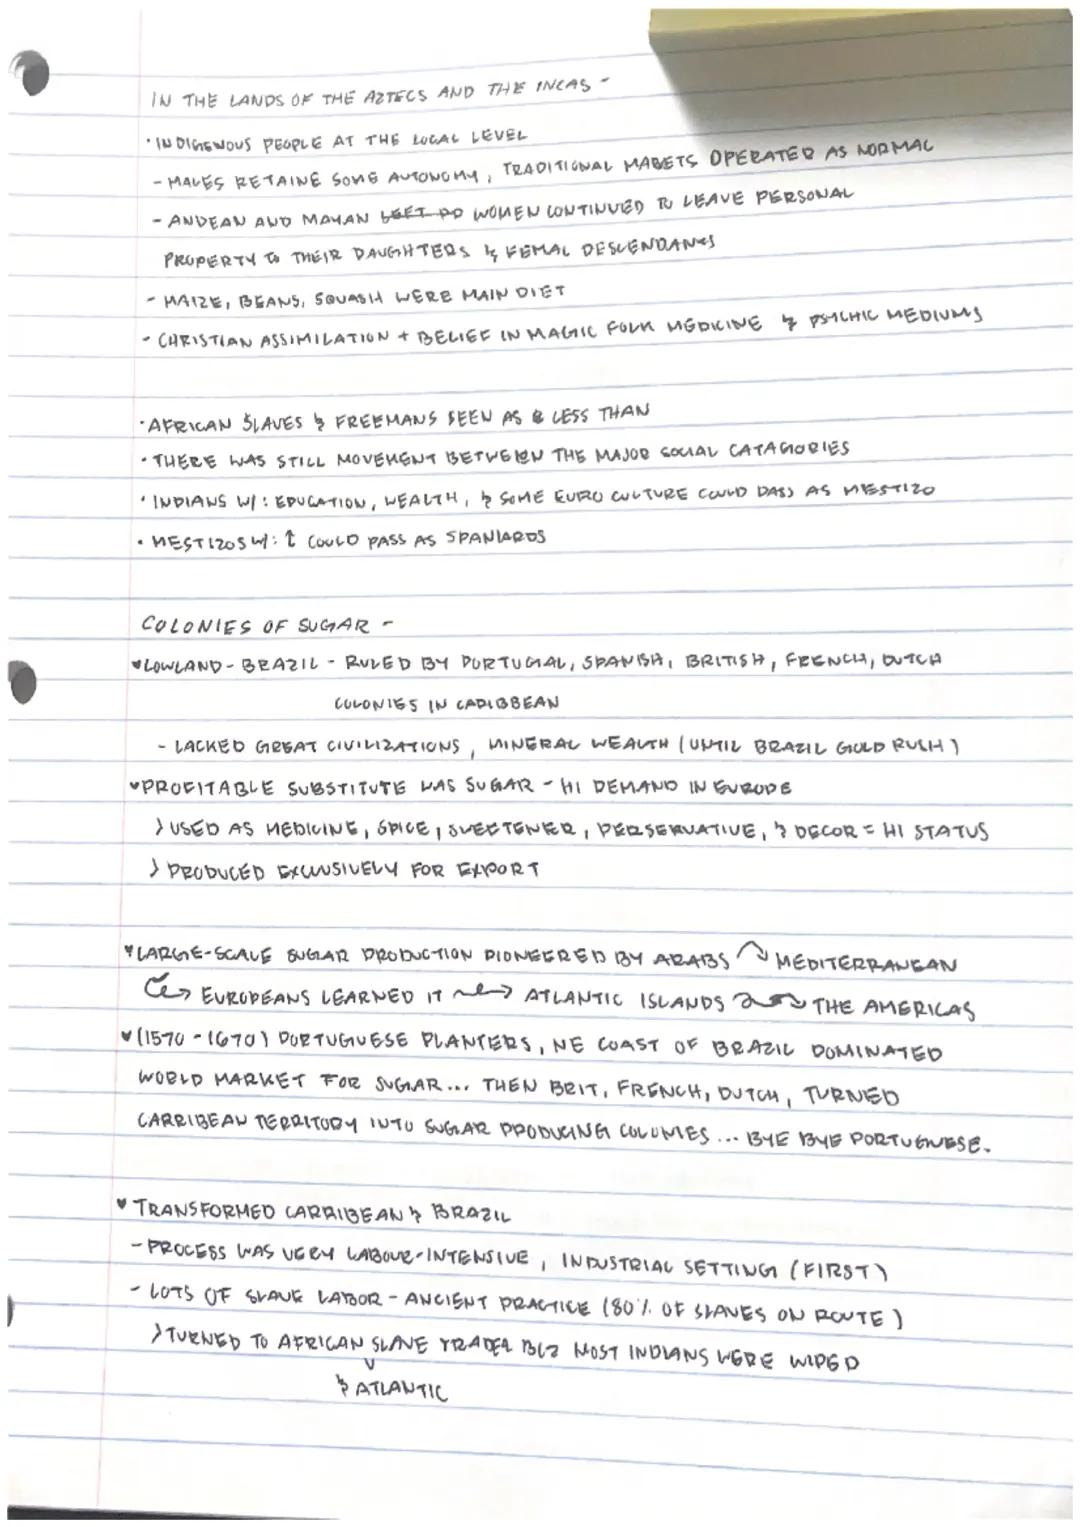 IN THE LANDS OF THE AZTECS AND THE INCAS -
• INDIGENOUS PEOPLE AT THE LOCAL LEVEL
- MALES RETAINE SOME AUTONOMY, TRADITIONAL MARETS OPERATED AS NORMAL
- ANDEAN AND MAYAN WOMEN CONTINUED TO LEAVE PERSONAL
PROPERTY TO THEIR DAUGHTERS & FEMAL DESCENDANTS
- MAIZE, BEANS, SQUASH WERE MAIN DIET
- CHRISTIAN ASSIMILATION + BELIEF IN MAGIC FOLK MEDICINE & PSYCHIC MEDIUMS
• AFRICAN SLAVES & FREEMANS SEEN AS LESS THAN
• THERE WAS STILL MOVEMENT BETWEEN THE MAJOR SOCIAL CATAGORIES
• INDIANS W/: EDUCATION, WEALTH, & SOME EURO CULTURE COULD PASS AS MESTIZO
• MESTIZOS W/: ↑ COULD PASS AS SPANIARDS
COLONIES OF SUGAR -
♥ LOWLAND - BRAZIL - RULED BY PORTUGAL, SPANISH, BRITISH, FRENCH, DUTCH
COLONIES IN CARIBBEAN
- LACKED GREAT CIVILIZATIONS, MINERAL WEALTH (UNTIL BRAZIL GOLD RUSH)
♥ PROFITABLE SUBSTITUTE WAS SUGAR - HI DEMAND IN EUROPE
> USED AS MEDICINE, SPICE, SWEETENER, PERSERVATIVE, & DECOR = HI STATUS
> PRODUCED EXCLUSIVELY FOR EXPORT
♥ LARGE-SCALE SUGAR PRODUCTION PIONEERED BY ARABS → MEDITERRANEAN
↪ EUROPEANS LEARNED IT → ATLANTIC ISLANDS → THE AMERICAS
♥ (1570 - 1670) PORTUGUESE PLANTERS, NE COAST OF BRAZIL DOMINATED
WORLD MARKET FOR SUGAR... THEN BRIT, FRENCH, DUTCH, TURNED
CARRIBEAN TERRITORY INTO SUGAR PRODUCING COLONIES ... BYE BYE PORTUGUESE.
♥ TRANSFORMED CARRIBEAN & BRAZIL
- PROCESS WAS VERY LABOUR-INTENSIVE, INDUSTRIAL SETTING (FIRST)
- LOTS OF SLAVE LABOR - ANCIENT PRACTICE (80% OF SLAVES ON ROUTE)
> TURNED TO AFRICAN SLAVE TRADER BCZ MOST INDIANS WERE WIPED
& ATLANTIC